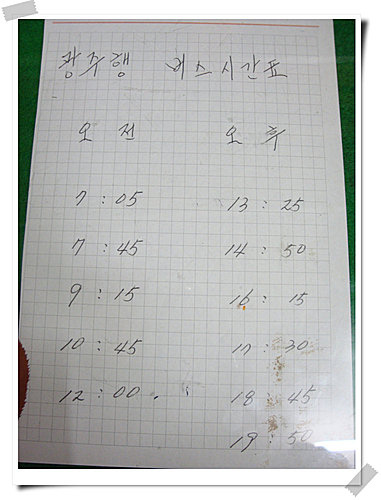 광주행 버스시간표
오전 오후
7:05 13:25
7:45 14:50
9:15 16:15
10:45 17:30
12:00 18:45
19:50